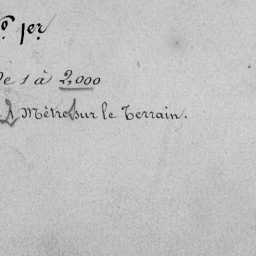 o 1er
De 1 à 2,000
Mètre sur le Terrain.